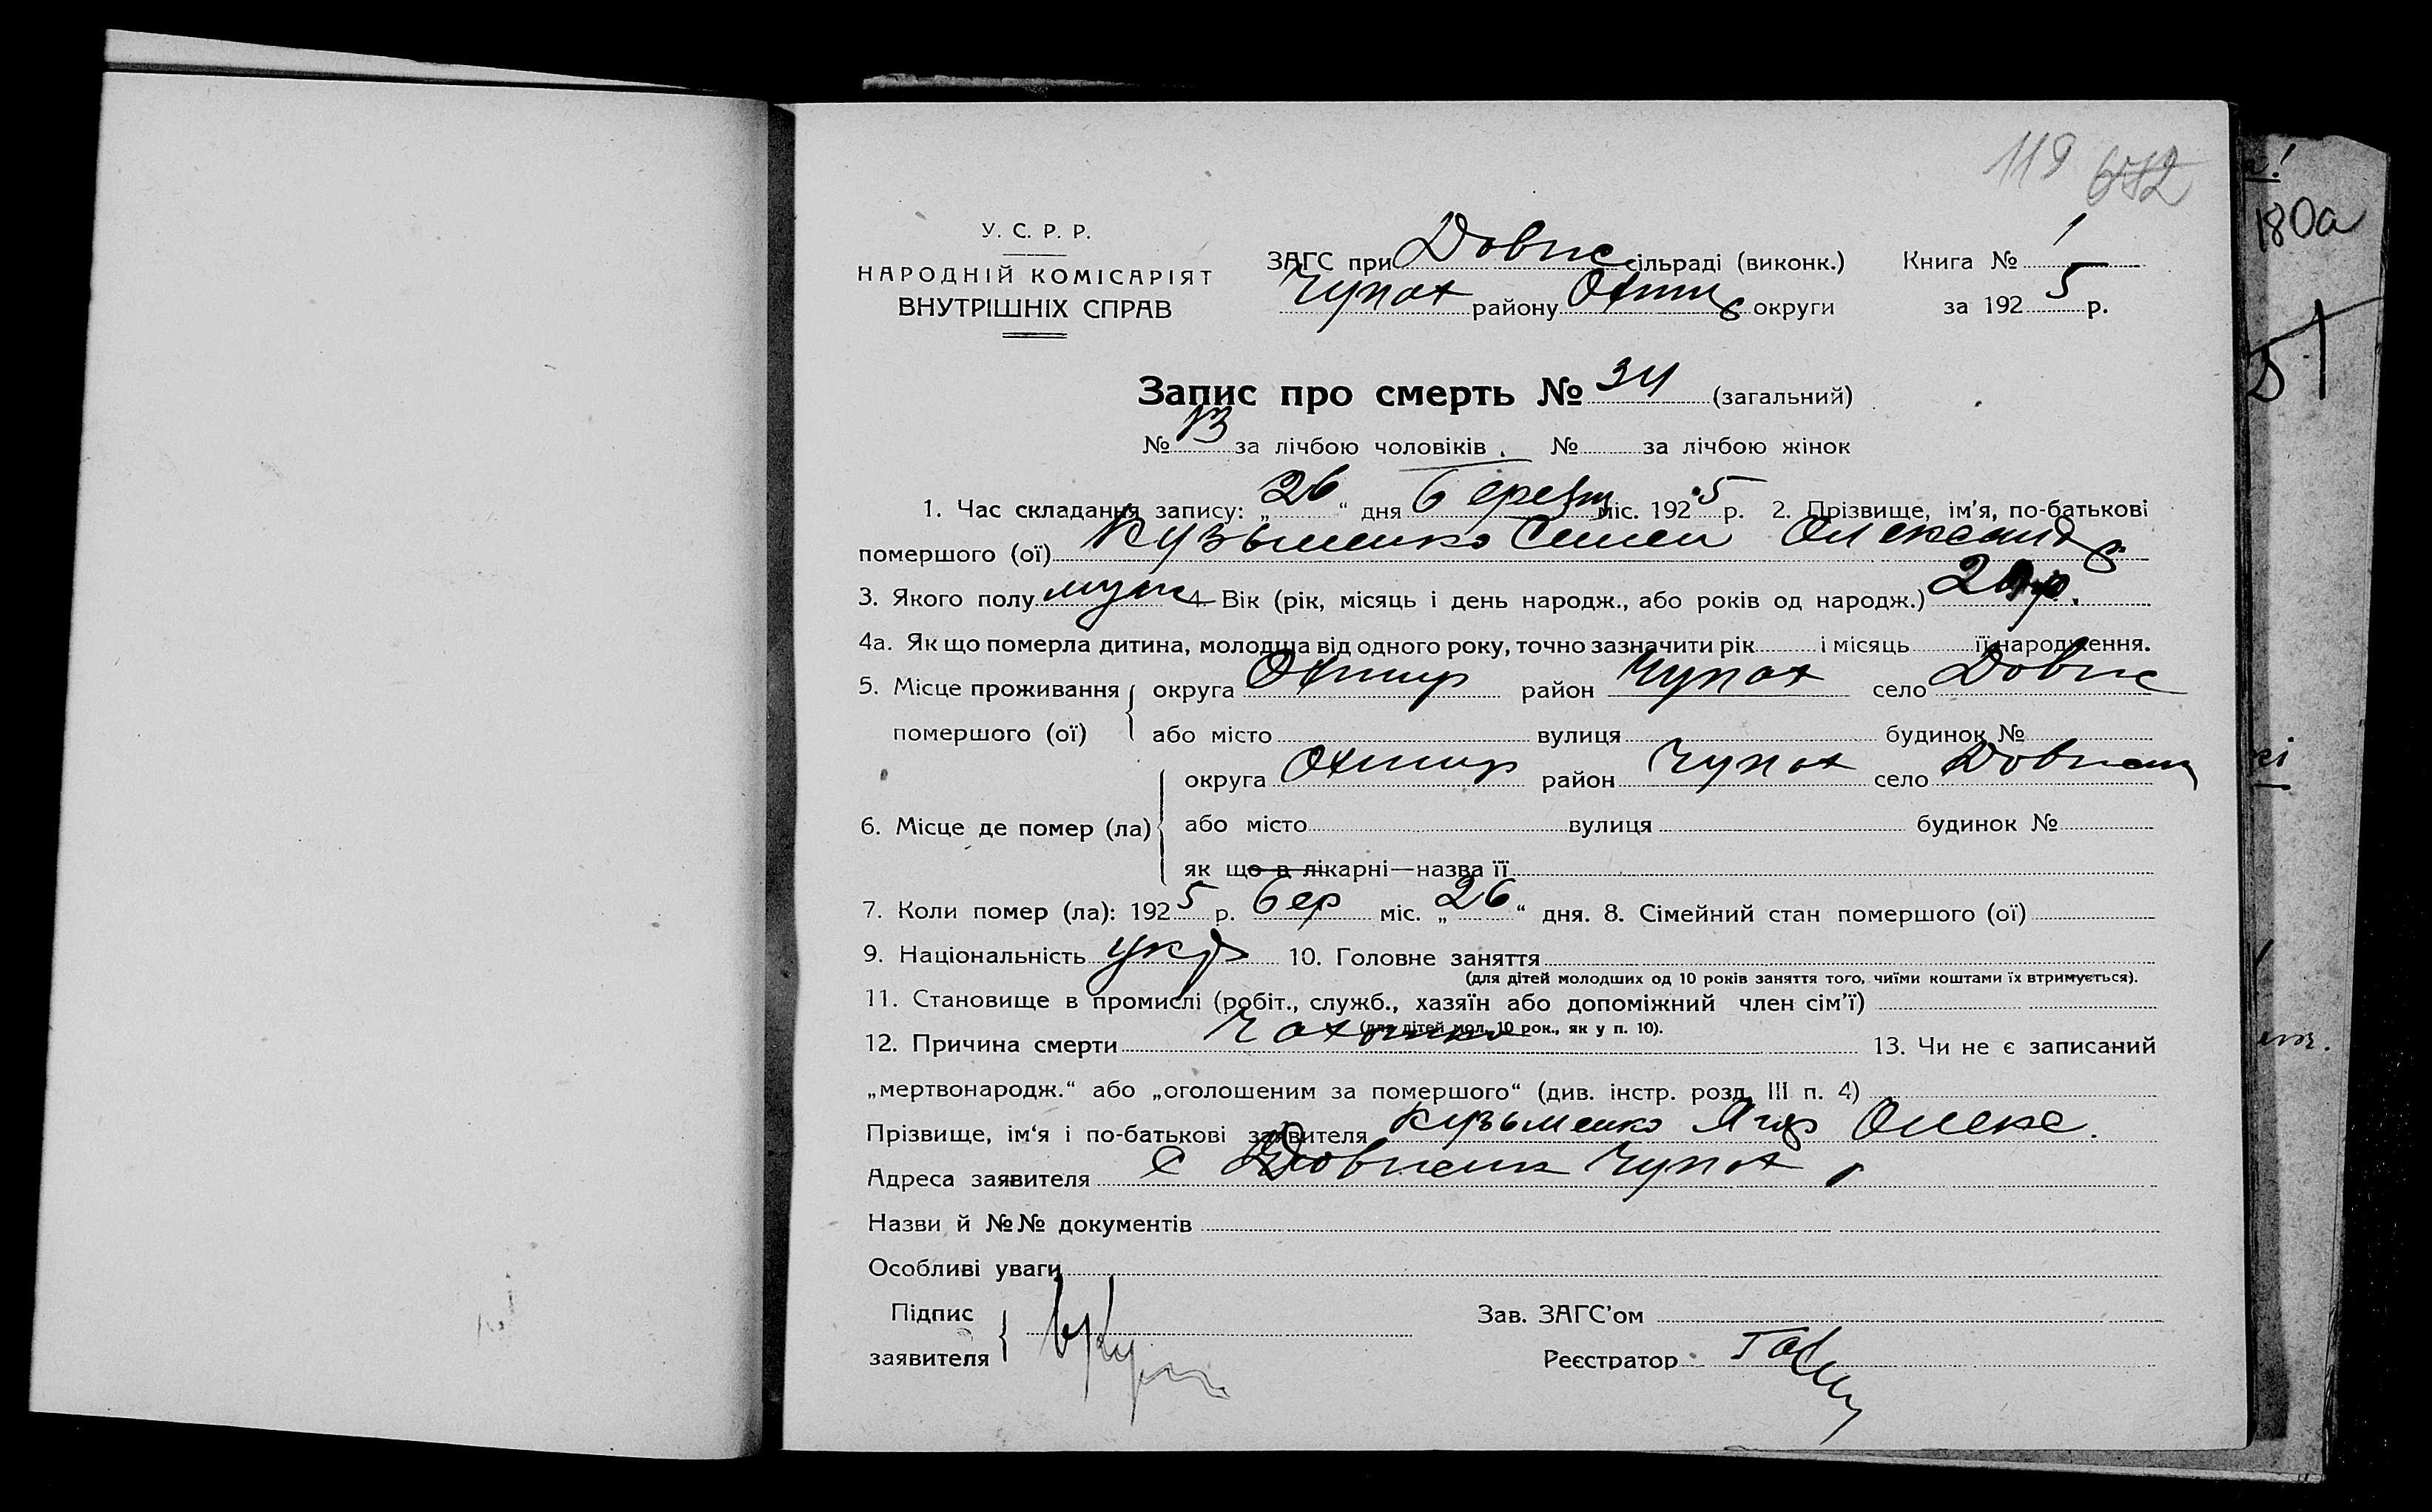 119 612
У. С. Р. Р.
НАРОДНІЙ КОМІСАРІЯТ
ВНУТРІШНІХ СПРАВ
ЗАГС при Довж сільраді (виконк.) Книга № 1
Чупах району Охтир округи за 1925 р.
Запис про смерть № 34 (загальний)
№ 13 за лічбою чоловіків. № за лічбою жінок
1. Час складання запису: „26“ дня березн міс. 1925 р. 2. Прізвище, ім'я, по-батькові
помершого (ої) Кузьменко Семен Олександ
3. Якого полу муж 4. Вік (рік, місяць і день народж., або років од народж.)
4а. Як що померла дитина, молодша від одного року, точно зазначити рік і місяць її народження.
5. Місце проживання округа Охтир район Чупах село Довж
помершого (ої) або місто вулиця будинок №
округа Охтир район Чупах село
6. Місце де помер (ла) або місто вулиця будинок №
як що в лікарні—назва її
7. Коли помер (ла): 1925 р. бер міс. „26“ дня. 8. Сімейний стан помершого (ої)
9. Національність укр 10. Головне заняття
(для дітей молодших од 10 років заняття того, чиїми коштами їх втримується).
11. Становище в промислі (робіт., служб., хазяїн або допоміжний член сім'ї)
(для дітей мол. 10 рок., як у п. 10).
12. Причина смерти Чахотка 13. Чи не є записаний
„мертвонародж.“ або „оголошеним за помершого“ (див. інстр. розд. III п. 4)
Прізвище, ім'я і по-батькові заявителя Кузьменко Олекс.
Адреса заявителя с Чупах
Назви й №№ документів
Особливі уваги
Підпис
заявителя
Зав. ЗАГС'ом
Реєстратор
180а